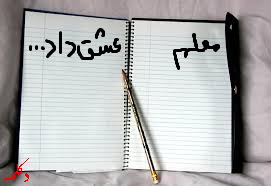 معلم عشق داد...